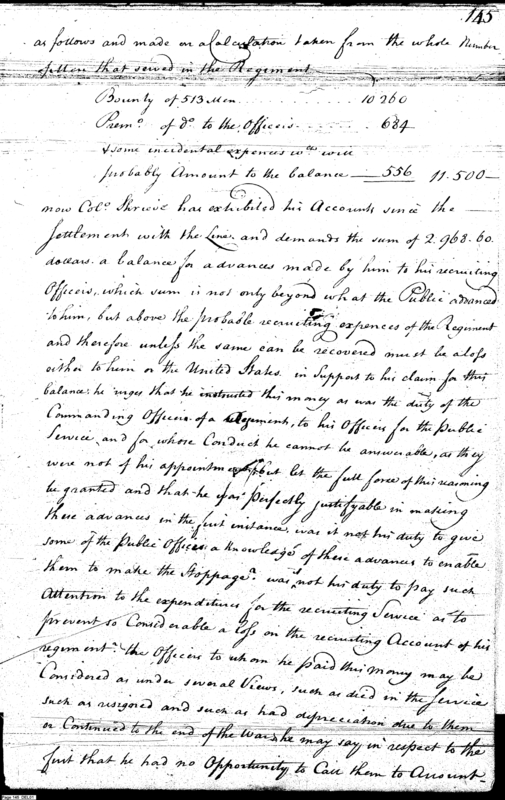 145
as follows and made on a Calculation taken from the whole Number
of Men that served in the Regiment
Bounty of 513 Men . . . . . . . . 10260
Premo. of do. to the Officers . . . . . . 684
& some incidental expences wch. will
probably Amount to the balance — 556 11.500 —
now Colo. Shrieve has exhibited his Accounts since the —
Settlement with the Line, and demands the sum of 2.968.60.
dollars. a balance for advances made by him to his recruiting
Officers, which sum is not only beyond what the Public advanced
to him, but above the probable recruiting expences of the Regiment
and therefore unless the same can be recovered must be a loss
either to him or the United States. in Support to his claim for this
balance; he urges that he intrusted this money as was the duty of the
Commanding Officer of a Regement, to his Officers for the Public
Service, and for whose Conduct he cannot be answerable, as they
were not of his appointment, but let the full force of this reasoning
be granted and that he was perfectly justifyable in making
these advances in the first instance, was it not his duty to give
some of the Public Offices a knowledge of these advances to enable
them to make the Stoppage? was it not his duty to pay such
Attention to the expenditures for the recruiting Service as to
prevent so Considerable a loss on the recruiting Account of his
regiment? the Officers to whom he paid this money may be
Considered as under several Views, such as died in the Service
such as resigned and such as had depreciation due to them
or Continued to the end of the War; he may say in respect to the
first that he had no Opportunity to Call them to Account —